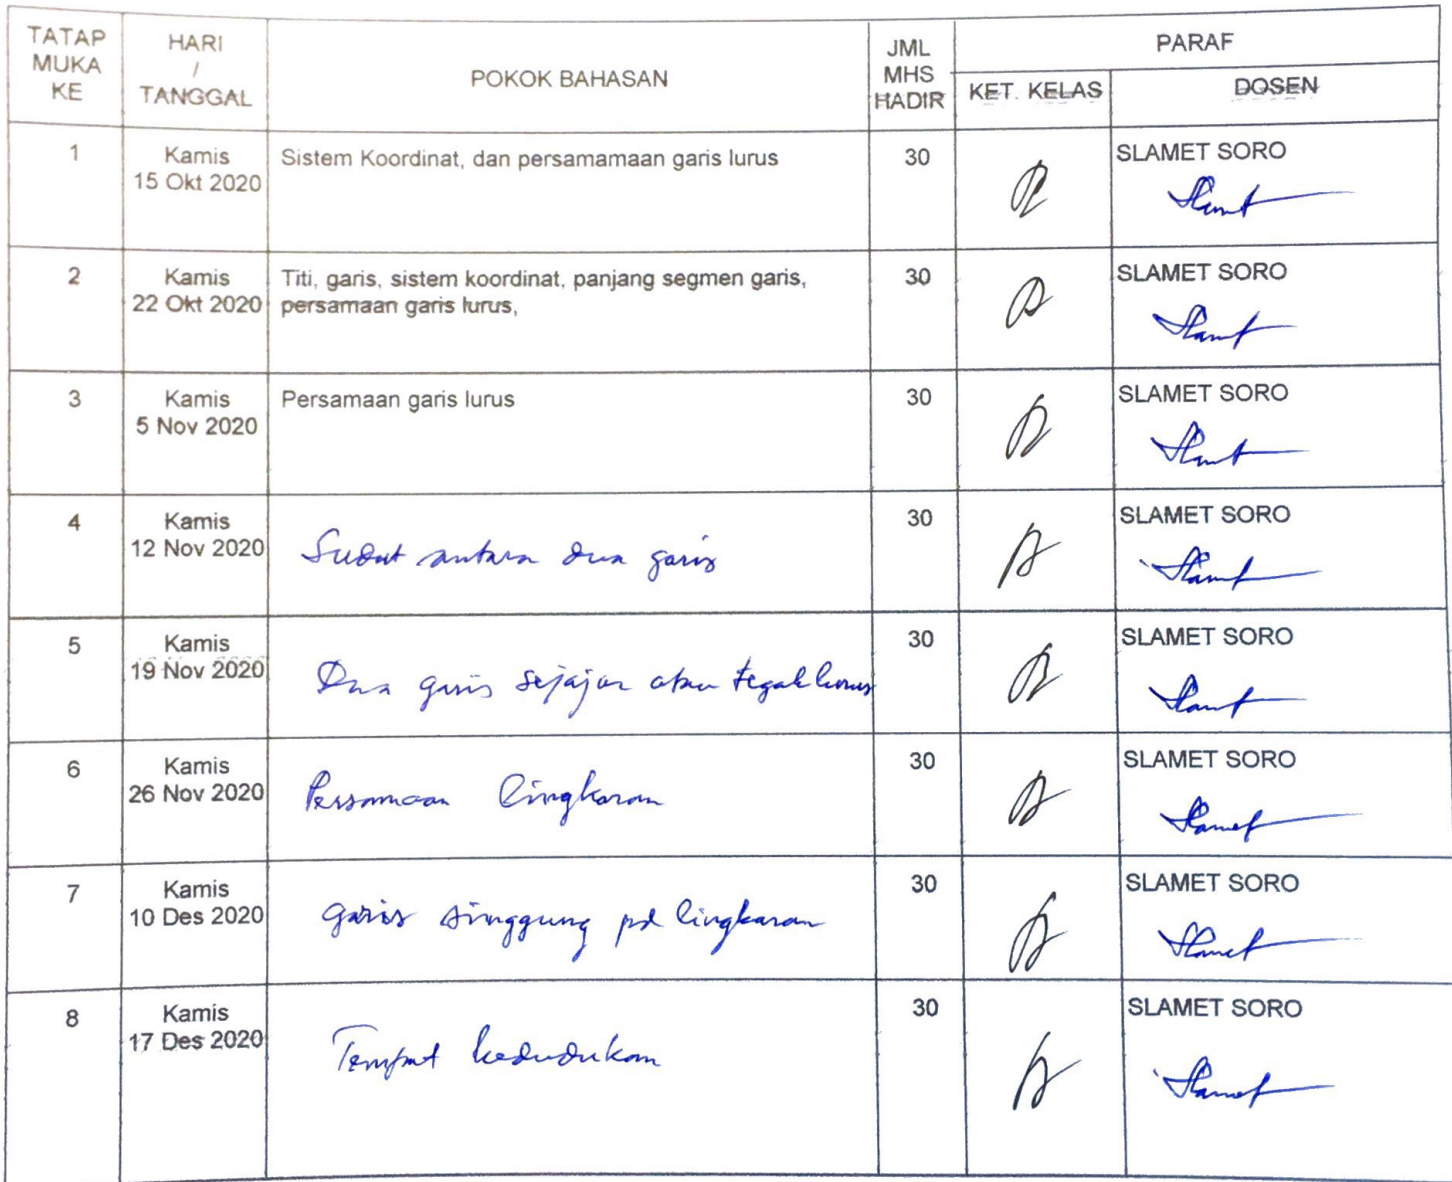 TATAP MUKA KE
HARI / TANGGAL
POKOK BAHASAN
JML MHS HADIR
PARAF
KET. KELAS
DOSEN
1
Kamis
15 Okt 2020
Sistem Koordinat, dan persamamaan garis lurus
30
SLAMET SORO
2
Kamis
22 Okt 2020
Titi, garis, sistem koordinat, panjang segmen garis,
persamaan garis lurus,
30
SLAMET SORO
3
Kamis
5 Nov 2020
Persamaan garis lurus
30
SLAMET SORO
4
Kamis
12 Nov 2020
Sudut antara dua garis
30
SLAMET SORO
5
Kamis
19 Nov 2020
Dua garis sejajar atau tegak lurus
30
SLAMET SORO
6
Kamis
26 Nov 2020
Persamaan lingkaran
30
SLAMET SORO
7
Kamis
10 Des 2020
garis singgung pd lingkaran
30
SLAMET SORO
8
Kamis
17 Des 2020
Tempat kedudukan
30
SLAMET SORO